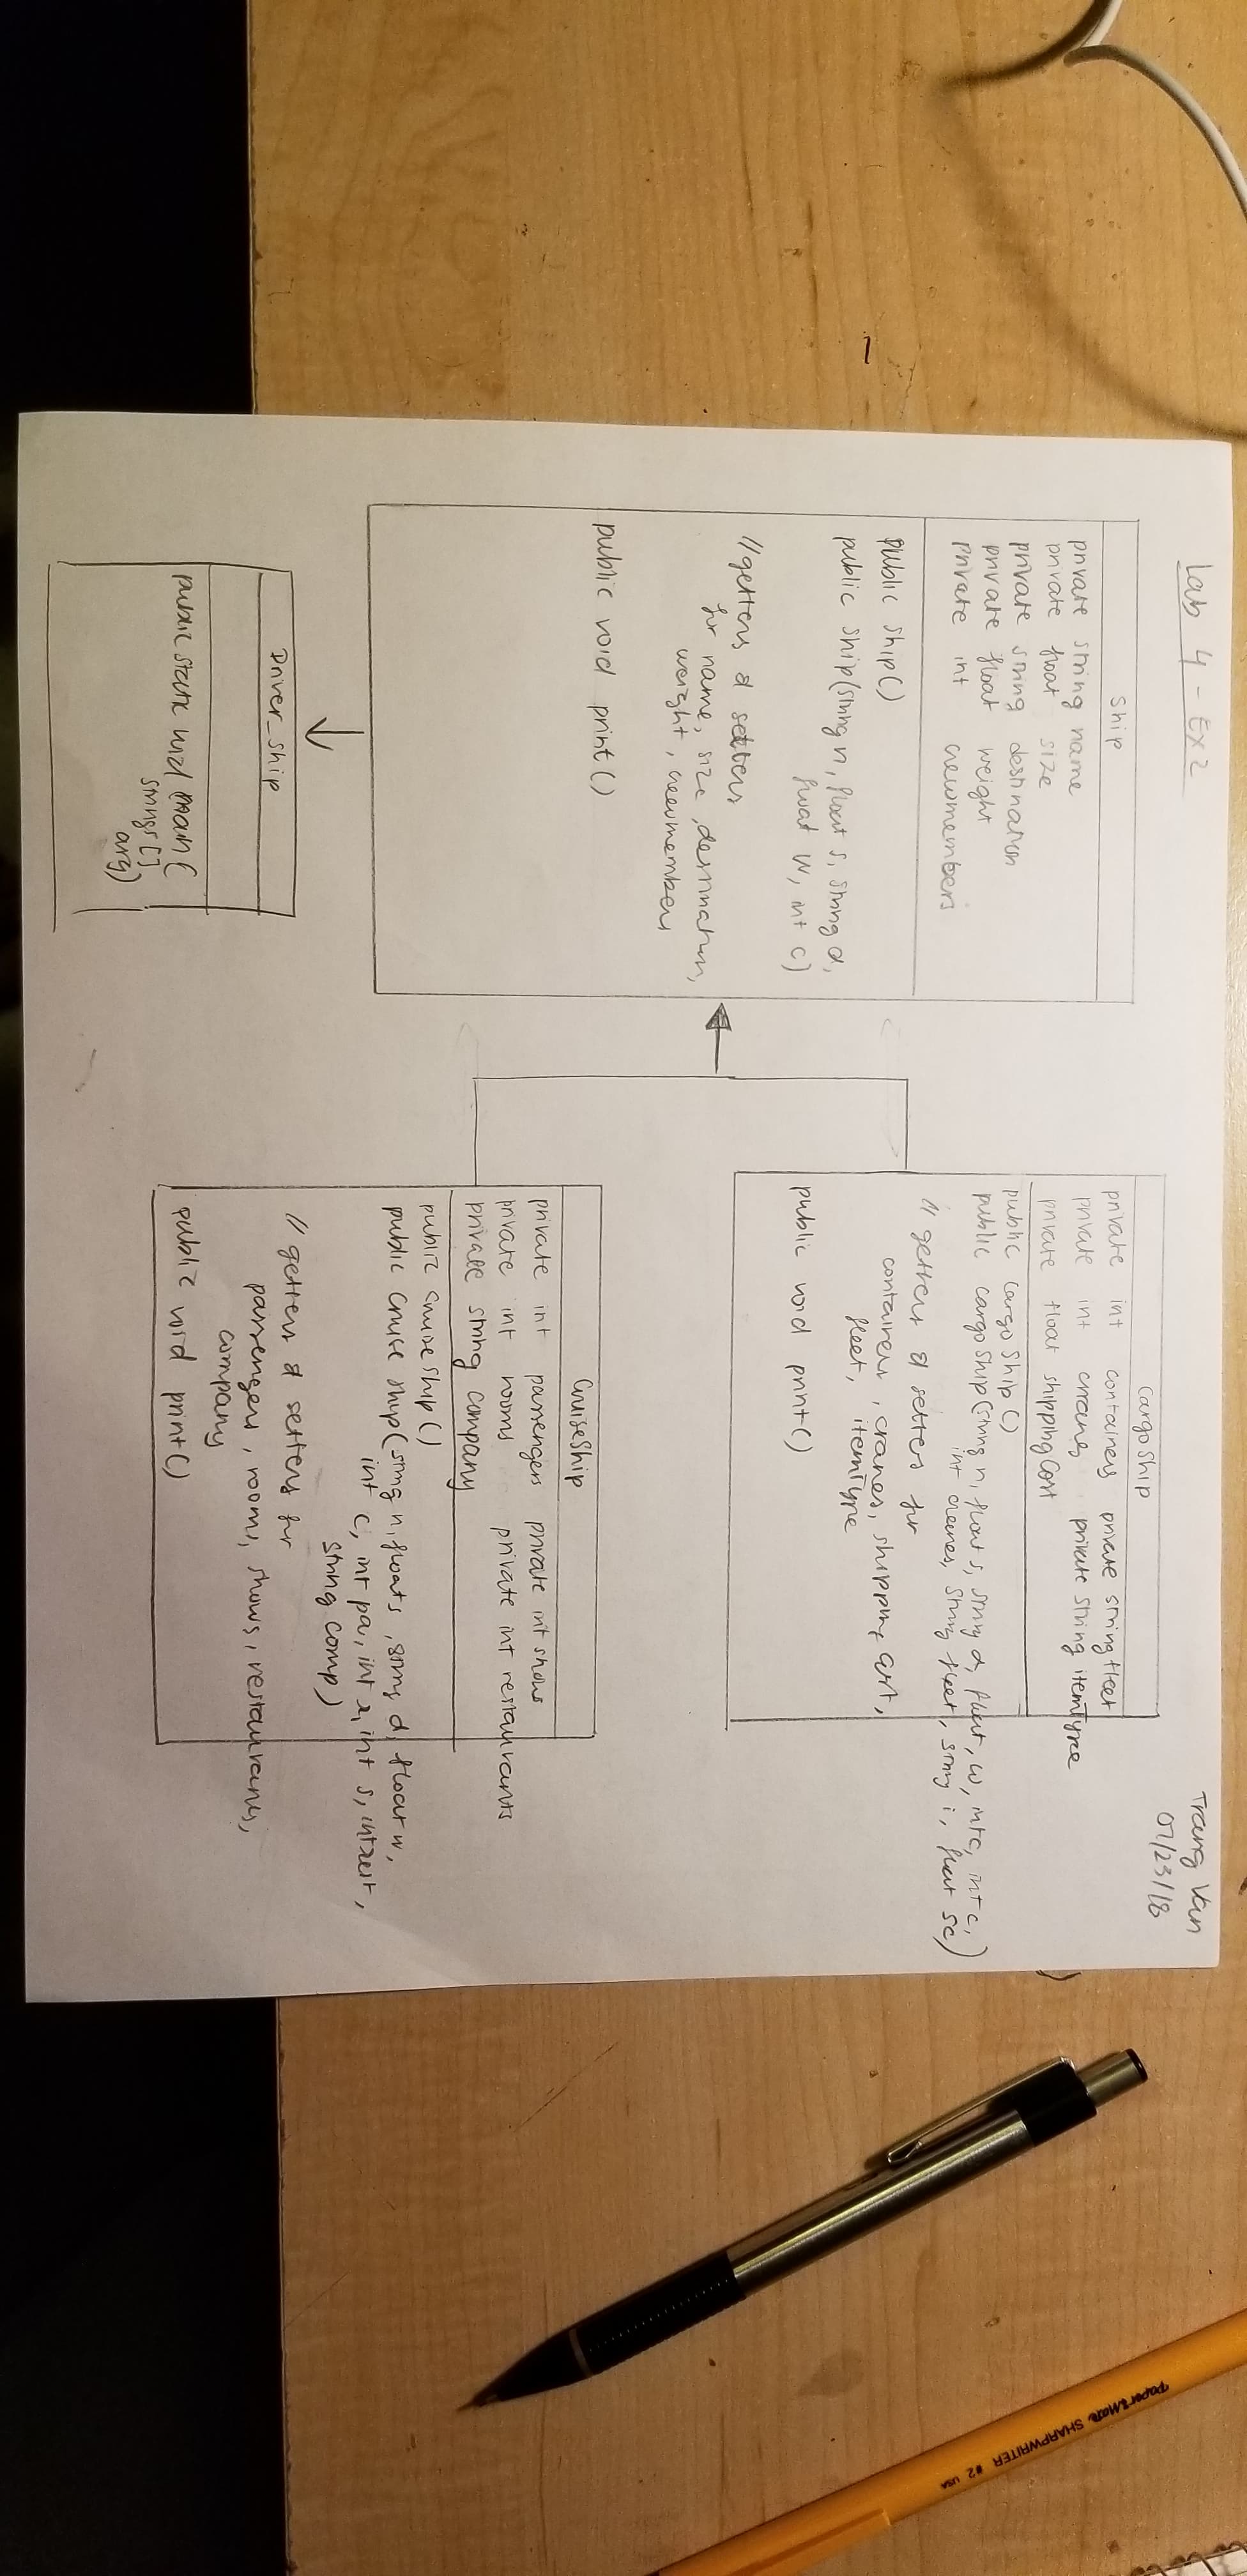 Lab 4 - Ex 2
Trang Van
07/23/18
Ship
private string name
private float size
private string destination
private float weight
private int crewmembers
public ship()
public ship(string n, float s, string d,
float w, int c)
//getters & setters
for name, size, destination,
weight, crewmembers
public void print()
Driver_Ship
public static void main(
strings[]
arg)
CargoShip
private int containers private string fleet
private int cranes private string itemType
private float shippingCost
public CargoShip()
public cargoShip(string n, float s, string d, float, w, int c, int c,
int cranes, string fleet, string i, float sc)
// getters & setters for
containers, cranes, shipping cost,
fleet, itemType
public void print()
CruiseShip
private int passengers private int shows
private int rooms private int restaurants
private string company
public cruiseShip()
public cruise ship(string n, float s, string d, float w,
int c, int pa, int r, int s, int rest,
string comp)
// getters & setters for
passengers, rooms, shows, restaurants,
company
public void print()
PaperMate SHARPWRITER #2 USA